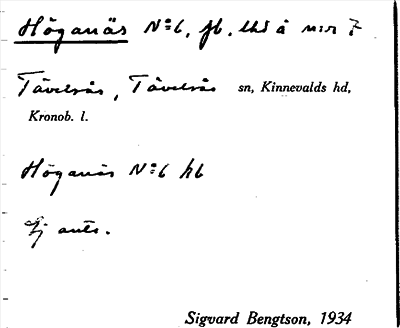 Höganäs No 6, fb, lhd å mur 7
Tävelsås, Tävelsås sn, Kinnevalds hd,
Kronob. l.
Höganäs No 6 hb
Ej ants.
Sigvard Bengtson, 1934